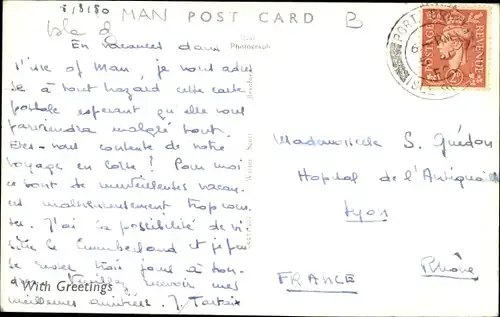 8/8/50
MAN POST CARD B
Isle d
Real
Photograph
En vacances dans
l'isle of Man, je vous adres
se à tout hazard cette carte
postale esperant qu'elle vous
parviendra malgré tout.
Etes-vous contente de votre
voyage en Corse ? Pour moi
ce sont de merveilleuses vacan
ces malheureusement trop cour
tes. J'ai la possibilité de vi
siter le Cumberland et je pense
rester trois jours à Lon-
dres. Veuillez recevoir mes
meilleures amitiés. J.
With Greetings
PORT
ISLE OF
POSTAGE
REVENUE
Mademoiselle S. Guédon
Hopital de l'Antiquaille
Lyon
Rhône
FRANCE